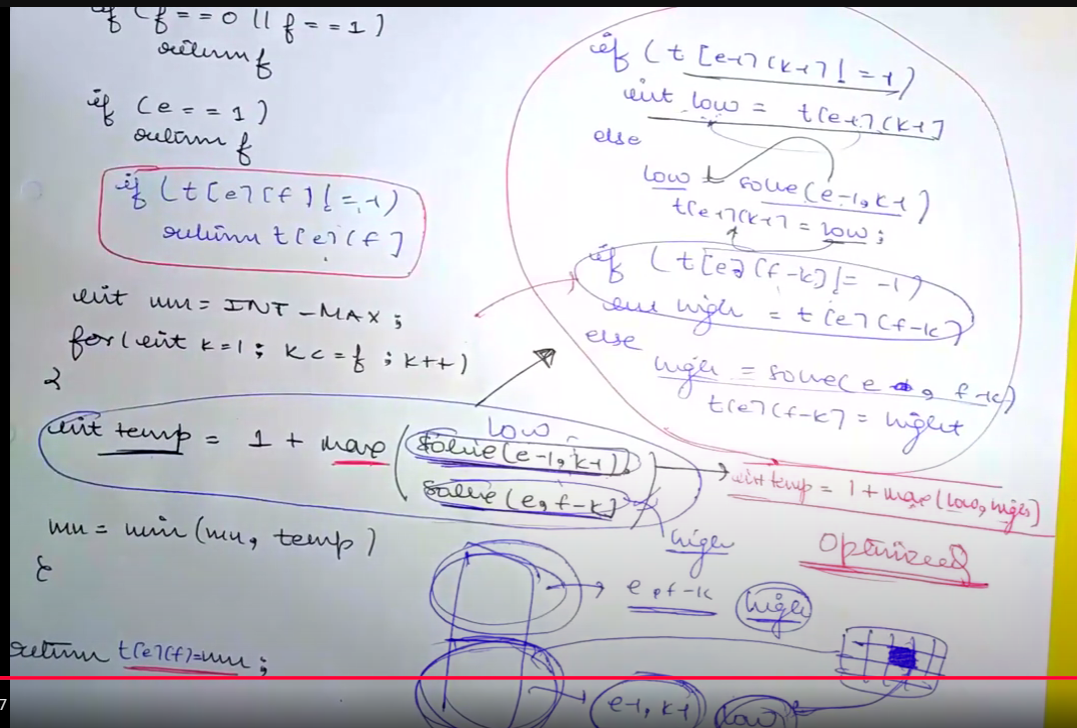 if (f==0 || f==1)
return f
if (e==1)
return f
if (t[e][f]!=-1)
return t[e][f]
int mn = INT-MAX;
for(int k=1; k<=f; k++)
{
int temp = 1 + max(solve(e-1,k-1),
solve(e,f-k))
low
high
mn = min(mn, temp)
}
return t[e][f]=mn;
if (t[e-1][k-1]!=-1)
int low = t[e-1][k-1]
else
low = solve(e-1,k-1)
t[e-1][k-1] = low;
if (t[e][f-k]!=-1)
int high = t[e][f-k]
else
high = solve(e, f-k)
t[e][f-k] = hight
int temp = 1+max(low,high)
Optimized
e, f-k
high
e-1, k-1
low
7